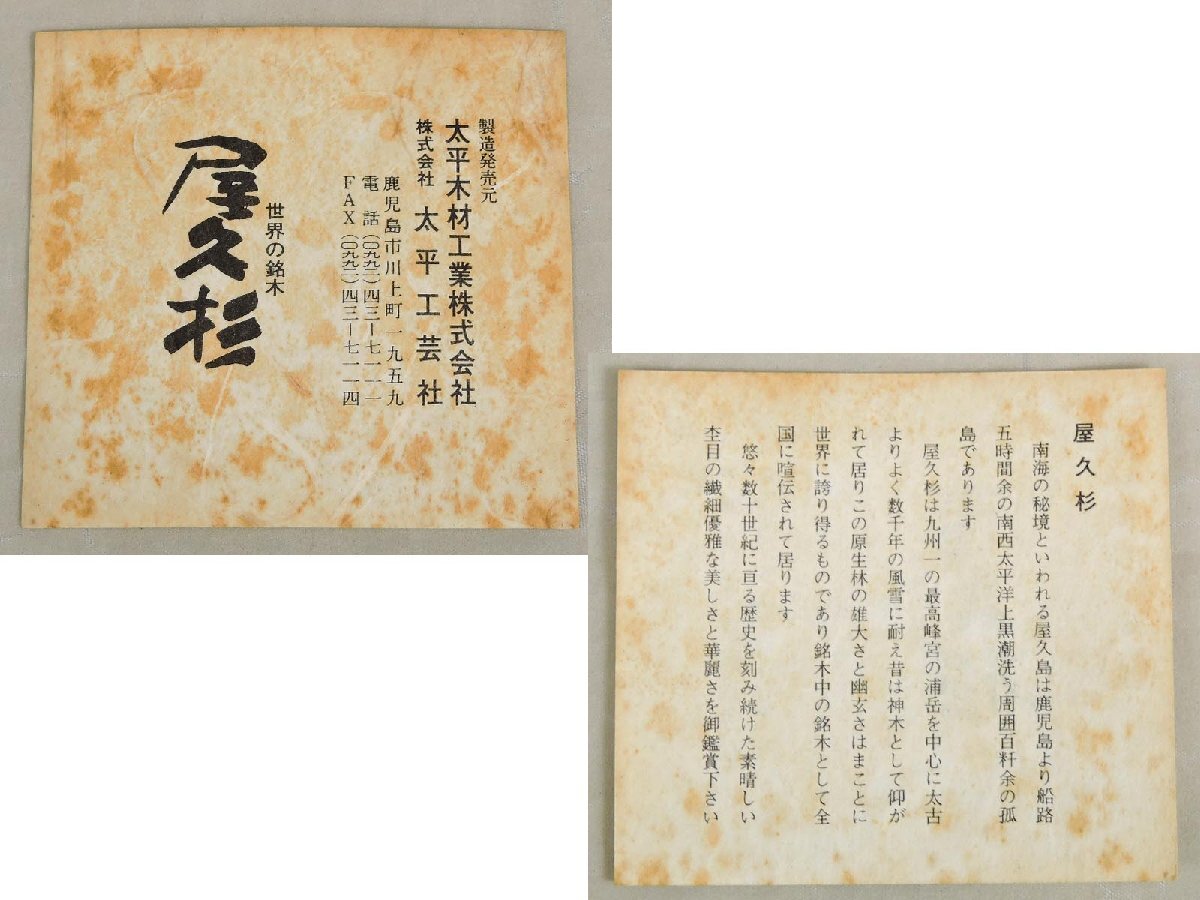 製造発売元
太平木材工業株式会社
株式会社 太平工芸社
鹿児島市川上町一九五九
電話(〇九九二)四三ー七一一一
FAX(〇九九二)四三ー七一一四
世界の銘木
屋久杉
屋久杉
南海の秘境といわれる屋久島は鹿児島より船路
五時間余の南西太平洋上黒潮洗う周囲百粁余の孤
島であります
屋久杉は九州一の最高峰宮の浦岳を中心に太古
よりよく数千年の風雪に耐え昔は神木として仰が
れて居りこの原生林の雄大さと幽玄さはまことに
世界に誇り得るものであり銘木中の銘木として全
国に喧伝されて居ります
悠々数十世紀に亘る歴史を刻み続けた素晴しい
杢目の繊細優雅な美しさと華麗さを御鑑賞下さい